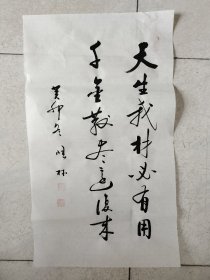 天生我材必有用
千金散尽还复来
癸卯冬